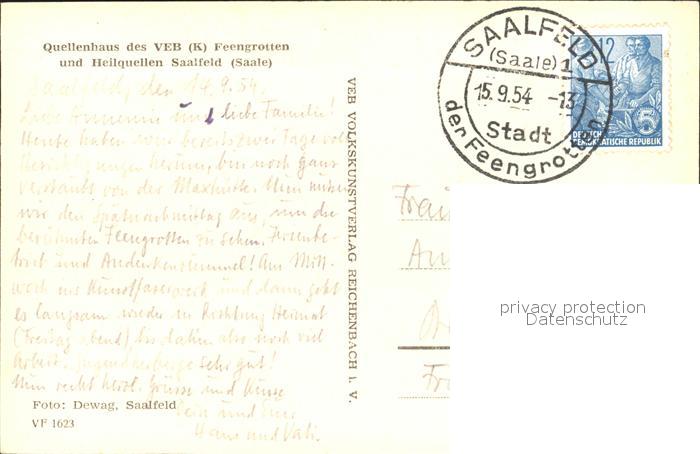 Quellenhaus des VEB (K) Feengrotten
und Heilquellen Saalfeld (Saale)
Saalfeld, den 14.9.54.
Liebe Annemie und liebe Familie!
Heute haben wir bereits zwei Tage voll
Besichtigungen herum, bin noch ganz
verstaubt von der Maxhütte. Nun nutzen
wir den Spätnachmittag aus, um die
berühmten Feengrotten zu sehen.
und Andenkenrummel! Am Mitt-
woch ins Kunstfaserwerk und dann geht
es langsam wieder in Richtung Heimat
(Freitag abend) bis dahin also noch viel
Arbeit. Jugendherberge sehr gut!
Nun recht herzl. Grüsse und Küsse
Dein und Euer
Hans und Vati.
Foto: Dewag, Saalfeld
VF 1623
VEB VOLKSKUNSTVERLAG REICHENBACH i. V.
SAALFELD
(Saale) 1
15.9.54 -13
Stadt
der Feengrotten
12
5
DEUTSCHE
DEMOKRATISCHE REPUBLIK
privacy protection
Datenschutz